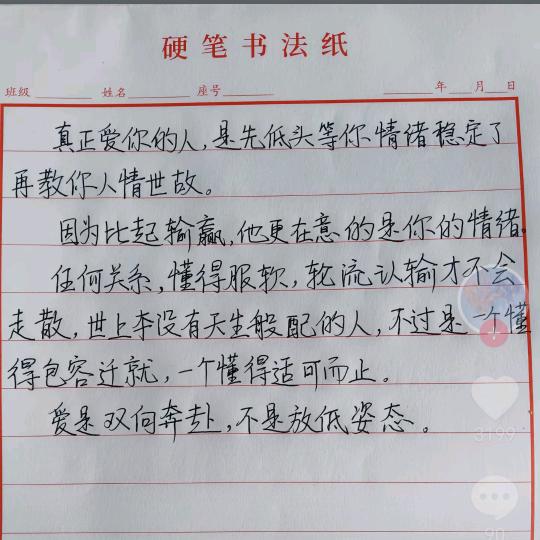 硬笔书法纸
班级 姓名 座号 年 月 日
真正爱你的人,是先低头等你情绪稳定了
再教你人情世故。
因为比起输赢,他更在意的是你的情绪。
任何关系,懂得服软,轮流认输才不会
走散,世上本没有天生般配的人,不过是一个懂
得包容迁就,一个懂得适可而止。
爱是双向奔赴,不是放低姿态。
3199
90